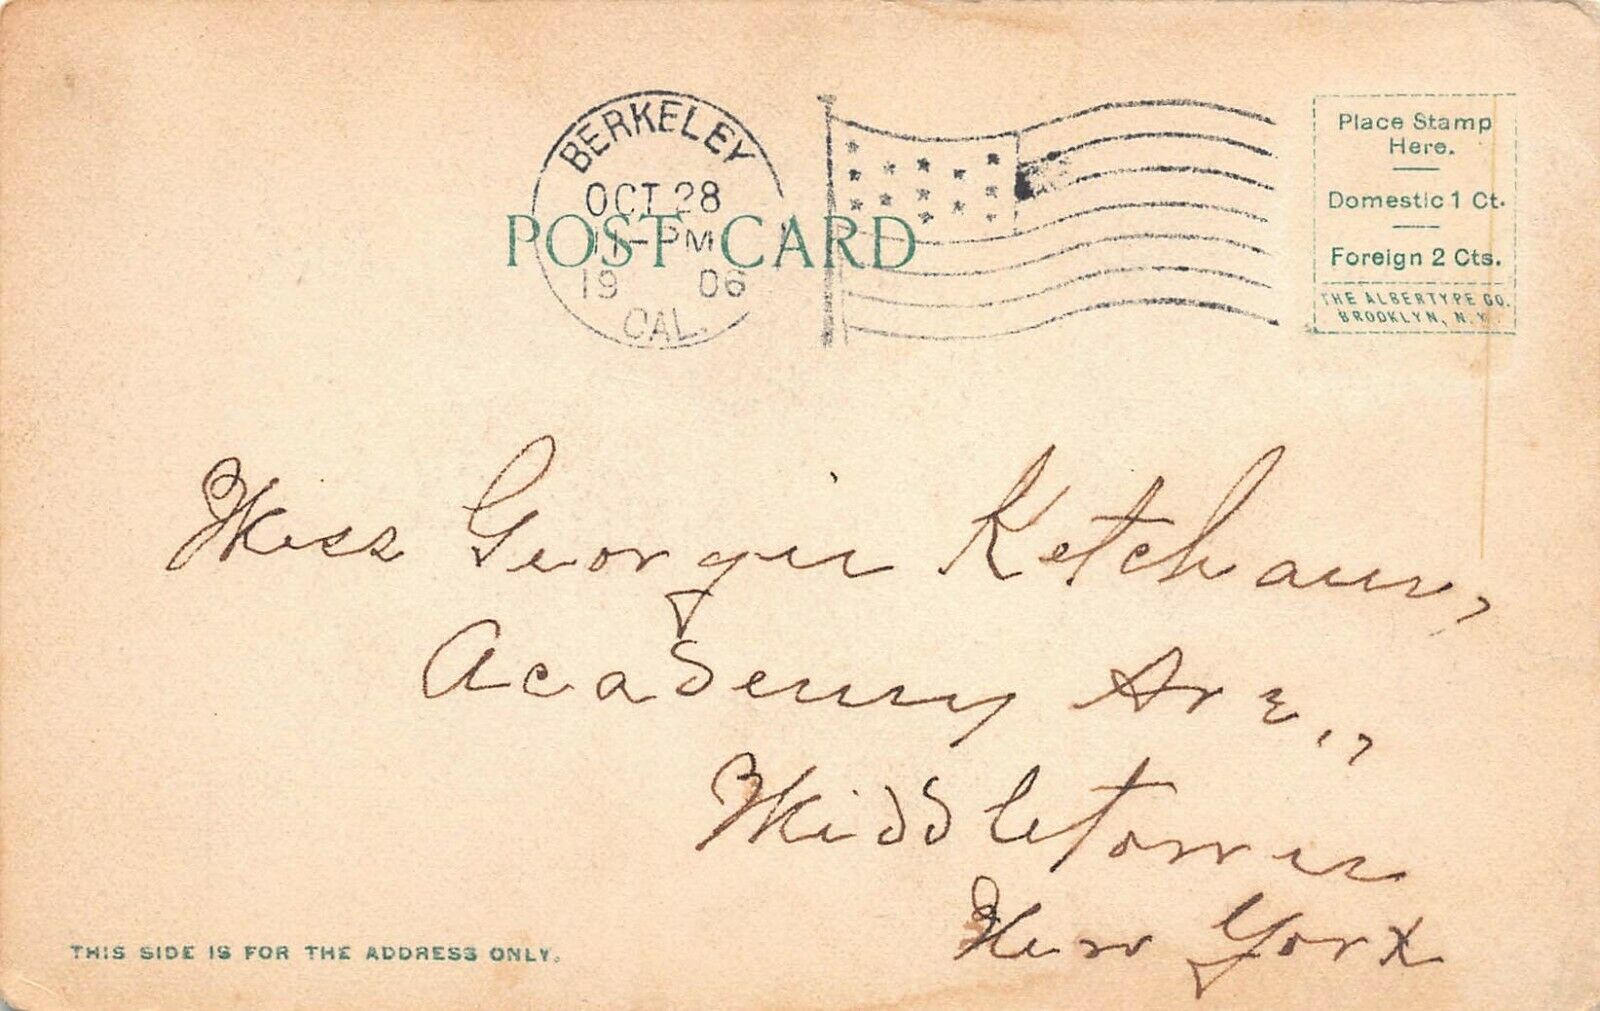 BERKELEY
OCT 28
11-PM
19 06
CAL.
POST CARD
Place Stamp
Here.
Domestic 1 Ct.
Foreign 2 Cts.
THE ALBERTYPE CO.
BROOKLYN, N.Y.
Miss Georgia Ketcham,
Academy Ave.,
Middletown
New York
THIS SIDE IS FOR THE ADDRESS ONLY.